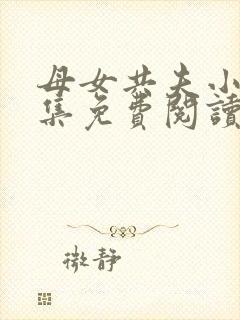 母女共夫小
集免費閱讀
微靜